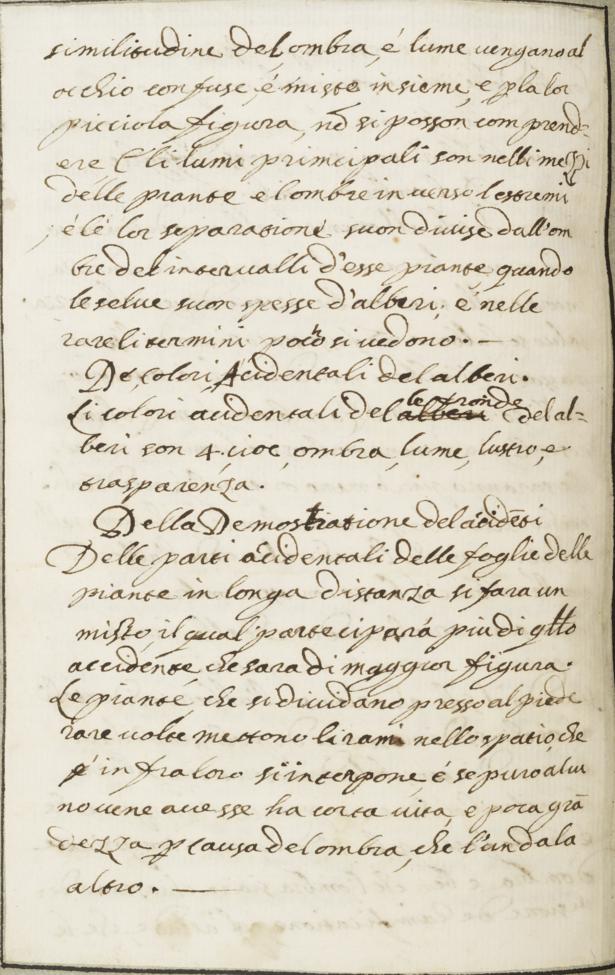 similitudine del ombra, é lume vengano al
occhio confuse, é miste insieme, e p la lor
picciola figura, nō si posson comprend-
ere E li lumi principali son nelli mezzi
delle piante e l ombre in verso l estremi
, é lé lor separatione suon divise dall'om
bre del intervalli d'esse piante quando
le selve suon spesse d'alberi, é nelle
rare li termini poco si vedono. —
De, colori, Acidentali del alberi.
Li colori acidentali del alberi le fronde del al-
beri son 4. cioe, ombra, lume, lustro, e
trasparenza.
Della Demostratione del acidēti
Delle parti acidentali delle foglie delle
piante in longa distanza si fara un
misto, il qual' parteciparà piu di qllo
accidente che sara di maggior figura.
Le piante, che si dividano presso al piede
rare volte mettono li rami nello spatio, che
é infra loro si interpone, é se pur alcu
no vene avesse ha corta vita, e poca grā
dezza p causa del ombra, che l'un da la
altro. —